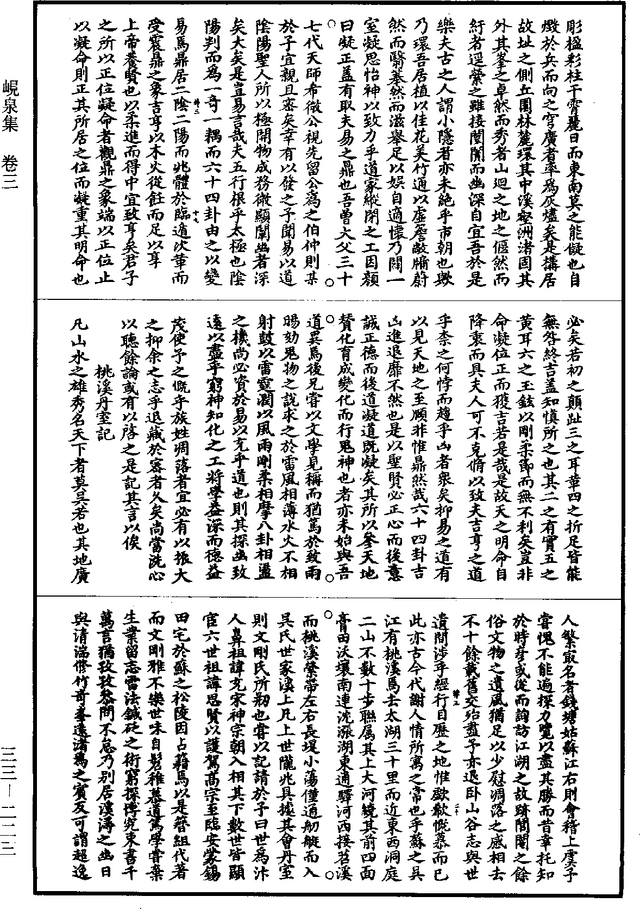 峴泉集 卷三
三三—二一三
彫楹彩柱干霄麗日而東南莫之能儗也自
燬於兵而向之穹廣者率為灰燼矣是搆居
故址之側丘園林麓環其中溪壑洲渚固其
外其峯之卓然而秀者山迴之地之偃然而
紆者逕縈之雖接闤闠而幽深自宜吾於是
樂夫古之人謂小隱者亦未絕乎市朝也歟
乃環吾居植以佳花美竹通以虛簷敞牖蔚
然而翳蓁然而滋舉足以娛自適懷乃闢一
室凝思怡神以致力乎道家縱閉之工因顏
曰凝正蓋有取夫易之鼎也吾曾大父三十
七代天師希微公視先留公為之伯仲則某
於子宜親且密矣幸有以發之予聞易以道
陰陽聖人所以極開物成務微顯闡幽者深
矣大矣是豈易言哉夫五行根乎太極也陰
陽判而為一奇一耦而六十四卦由之以變
易焉鼎居二陰二陽而兆體於臨遁次革而
受震鼎之象吉亨以木火從飪而足以享
上帝養賢也以柔進而得中宜致亨矣君子
之所以正位凝命者觀鼎之象端以正位止
以凝命則正其所居之位而凝重其明命也
必矣若初之顛趾三之耳革四之折足皆能
無咎終吉蓋知慎所之也其二之有實五之
黃耳六之玉鉉以剛柔節而無不利矣豈非
命凝位正而獲吉若是哉是故天之明命自
降衷而具夫人可不克脩以致夫吉亨之道
乎柰之何悖而趨乎凶者衆矣抑易之道有
以見天地之至順非惟鼎然哉六十四卦吉
凶進退靡不然也是以聖賢必正心而後意
誠正德而後道凝道既凝矣其所以參天地
贊化育成變化而行鬼神也者亦未始與吾
道異焉後兄嘗以文學見稱而猶篤於致雨
暘劾鬼物之說求之於雷風相薄水火不相
射鼓以雷霆潤以風雨剛柔相摩八卦相盪
之機尚必資於易以充乎道也則其探幽致
遠以盡乎窮神知化之工將學益深而德益
茂使予之慨乎族姓凋落者宜必有以振大
之抑余之志乎退藏於密者久矣尚當洗心
以聽餘論或有以啓之是記其言以俟
桃溪丹室記
凡山水之雄秀名天下者莫吳若也其地廣
人繁最名者錢塘姑蘇江右則會稽上虞予
嘗愧不能遍探力覽以盡其勝而昔幸托知
於時彥或從而詢訪江湖之故跡閭閻之餘
俗文物之遺風猶足以少慰凋落之感相去
不十餘載舊交殆盡予亦退卧山谷志與世
遺間涉乎經行目歷之地惟歔欷慨慕而已
此亦古今代謝人情所寓之常也乎蘇之吳
江有桃溪焉去太湖三十里而近東西洞庭
二山不數十步聯屬其上大河繞其前四面
膏田沃壤南連沈漲湖東通驛河西接苕溪
而桃溪縈帶左右長堤小蕩僅通舫艇而入
吳氏世家溪上凡上世隴兆具據其會丹室
則文剛氏所剏也嘗以記請於予曰世為汴
人鼻祖諱充宋神宗朝入相其下數世皆顯
官六世祖諱思賢以護駕高宗至臨安蒙錫
田宅於蘇之松陵因占籍焉以是簪組代著
而文剛雅不樂世味自髫稚慕道篤學嘗棄
生業留志雷法鍼砭之術窮探博究束書千
萬言猶孜孜叅問不怠乃別居溪滸之幽日
與清湍脩竹奇峯遠渚為之賓友可謂超逸